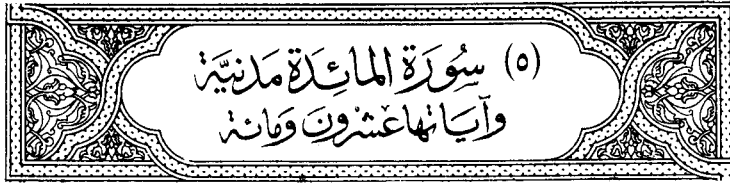 (٥) سُورَة المائِدَة مَدَنيَّة
وآيَاتها عشرون وَمائة